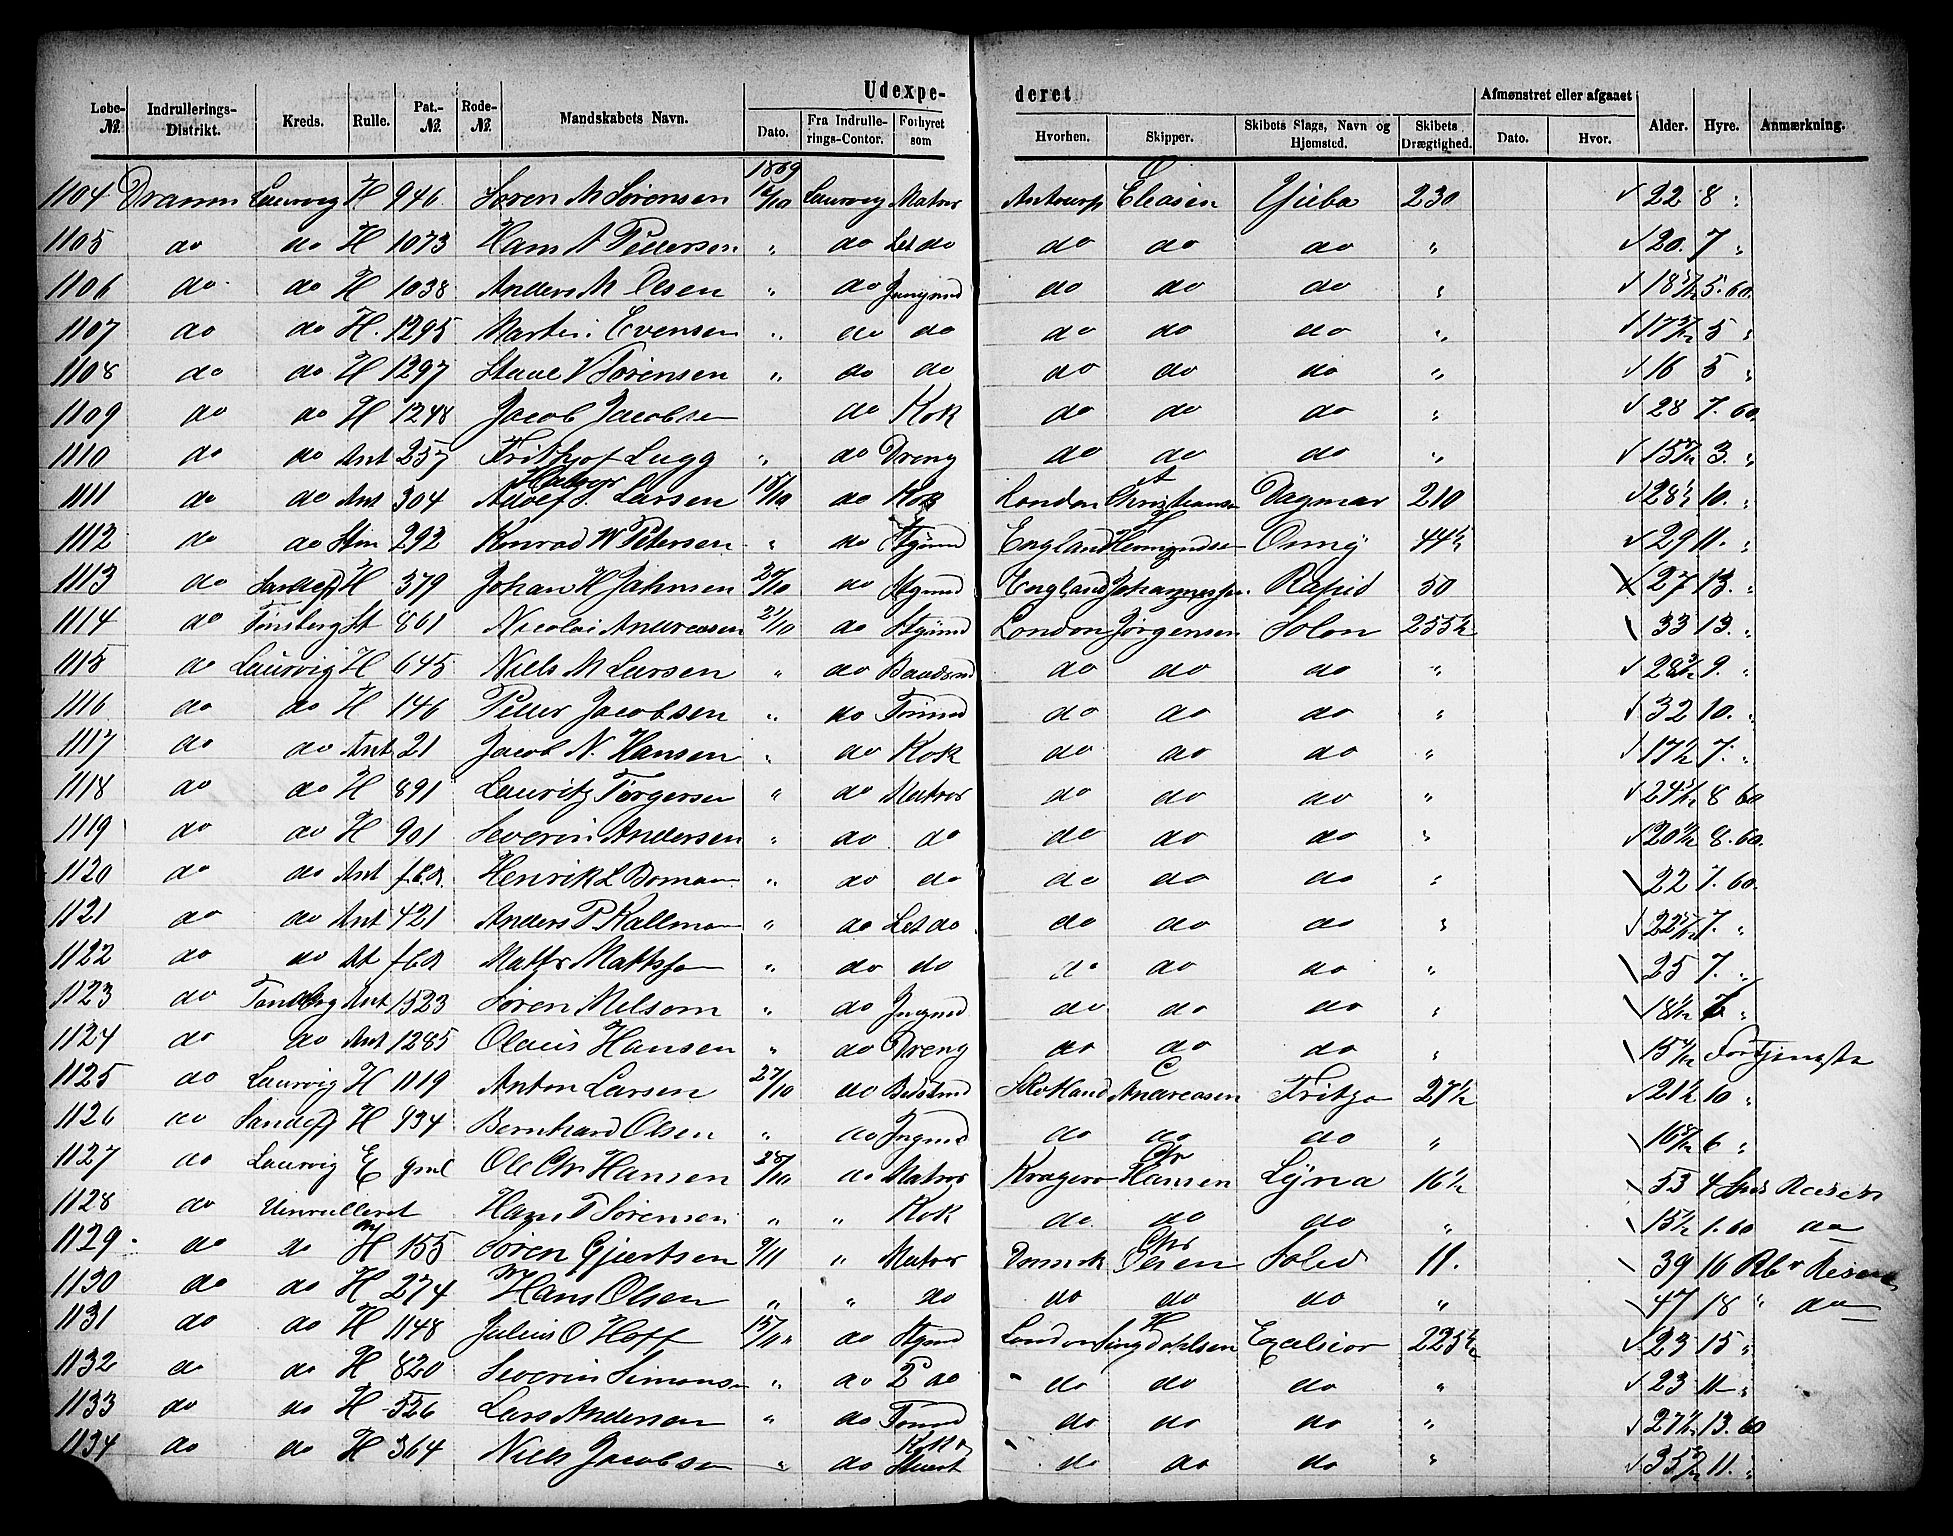 Udexpe- deret
Løbe- № Indrullerings-Distrikt. Kreds. Rulle. Pat.- № Rode- № Mandskabets Navn. Dato. Fra Indrullerings-Contor. Forhyret som Hvorhen. Skipper. Skibets Slags, Navn og Hjemsted. Skibets Drægtighed. Afmønstret eller afgaaet Dato. Hvor. Alder. Hyre. Anmærkning.
1869
1104 Dramm Laurvig H 946 Søren M Sørensen 12/10 Laurvig Matros Antwerp Eliasen 230 √ 22 8 "
1105 do do H 1073 Hans A Pettersen " do Let do do do do " √ 20. 7 "
1106 do do H 1038 Anders M Olsen " do Jungmd do do do " 5. 60.
1107 do do H. 1295 Martin Evensen " do do do do do " 5 "
1108 do do H 1297 V Sørensen " do do do do do " √ 16 5 "
1109 do do H 1248 Jacob Jacobsen do Kok do do do " √ 28 7. 60.
1110 do do Ant 257 Frithjof Lugg " do Dreng do do do " 3. "
1111 do do Ant 304 Larsen 15/10 do Kok London Christiansen Dagmar 210 10. "
1112 do do 292 Konrad W Petersen " do Stymd England Onny 44½ √ 29 11. "
1113 do Sandefj H 379 Johan H Jahnsen do Stymd England Johannessen Rapid 50 27 13. "
1114 do Tønsberg St 861 Nicolai Andreasen 21/10 do Stymd London Jørgensen Solon 255½ \ 33 13. "
1115 do Laurvig H 645 Niels M Larsen " do Baadsmd do do do " 9. "
1116 do do H 146 Petter Jacobsen " do Tømmd do do do " √ 32 10. "
1117 do do Ant 21 Jacob N. Hansen " do Kok do do do " √ 17½ 7. "
1118 do do H 891 Lauritz Torgersen " do Matros do do do " 8 60
1119 do do H 901 Severin Andersen " do do do do do " 8. 60.
1120 do do Ant f.C.R. Henrik L Boman " do do do do do " \ 22 7. 60.
1121 do do Ant 421 Anders P Kallman " do Let do do do do " 7. "
1122 do do At f.C.R Matts Mattsson " do do do do do " \ 25 7. "
1123 do Tønsberg Ant 1523 Søren Melsom " do Jngmd do do do "
1124 do do Ant 1285 Olaus Hansen " do Dreng do do do " Fortjeneste
1125 do Laurvig H 1119 Anton Larsen 27/10 do Bedstmd Skotland C Andreasen Fritzø 27½ √ 21½ 10 "
1126 do Sandefj H 434 Bernhard Olsen " do Jngmd do do do " 6 "
1127 do Laurvig E gml Ole Chr Hansen 28/10 do Matros Kragerø Chr Hansen Lyna 16½ \ 53 4 Reisen
1128 do Uinrulleret Hans P Sørensen " " Kok do do do " \ 15½ 1.60 do
1129 do do H 155 Søren Gjertsen 9/11 " Matros Danmark Chr Olsen Solid 11. \ 39 16 Reisen
1130 do do H 274 Hans Olsen " " do do do do " \ 47 18 " do
1131 do do H 1148 Julius O Hoff 15/11 do Stymd London H Lingdahlsen Excelsior √ 23 15 "
1132 do do H 820 Severin Simonsen " do 2 do do do do " √ 23 11 "
1133 do do H 526 Lars Andersen " do Tømmd do do do " √ 27½ 13. 60
1134 do do H 364 Niels Jacobsen " do Kok & Stuert do do do " 11. "